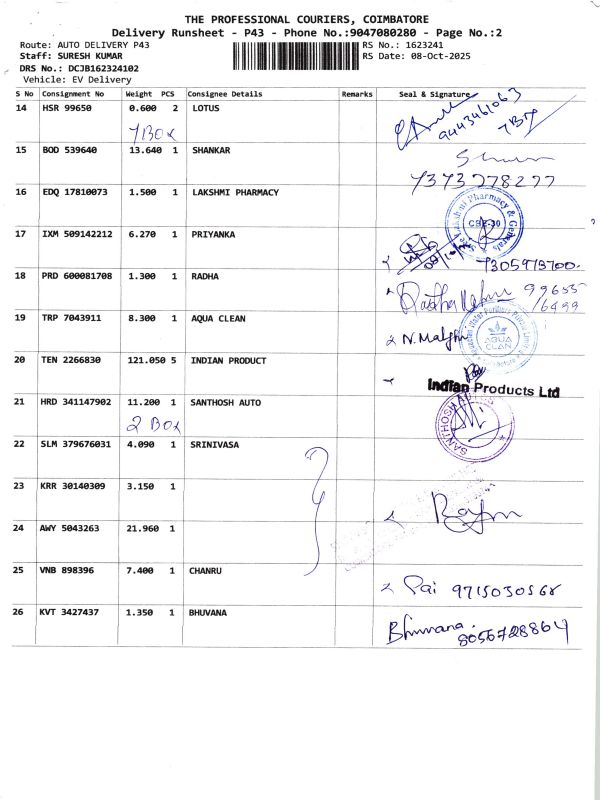 THE PROFESSIONAL COURIERS, COIMBATORE
Delivery Runsheet - P43 - Phone No.:9047080280 - Page No.:2
Route: AUTO DELIVERY P43 RS No.: 1623241
Staff: SURESH KUMAR RS Date: 08-Oct-2025
DRS No.: DCJB162324102
Vehicle: EV Delivery
S No Consignment No Weight PCS Consignee Details Remarks Seal & Signature
14 HSR 99650 0.600 2 LOTUS
9443461063
7 BOX
15 BOD 539640 13.640 1 SHANKAR
7373778277
16 EDQ 17810073 1.500 1 LAKSHMI PHARMACY
Sri Lakshmi Pharmacy & Generals
CBE-30
17 IXM 509142212 6.270 1 PRIYANKA
7305973700
18 PRD 600081708 1.300 1 RADHA
99655
/6499
19 TRP 7043911 8.300 1 AQUA CLEAN
AQUA
CLAN
20 TEN 2266830 121.050 5 INDIAN PRODUCT
Indian Products Ltd
21 HRD 341147902 11.200 1 SANTHOSH AUTO
SANTHOSH AUTO
2 BOX
22 SLM 379676031 4.090 1 SRINIVASA
23 KRR 30140309 3.150 1
24 AWY 5043263 21.960 1
25 VNB 898396 7.400 1 CHANRU
Pai 9715030568
26 KVT 3427437 1.350 1 BHUVANA
Bhuvana.
8056728864